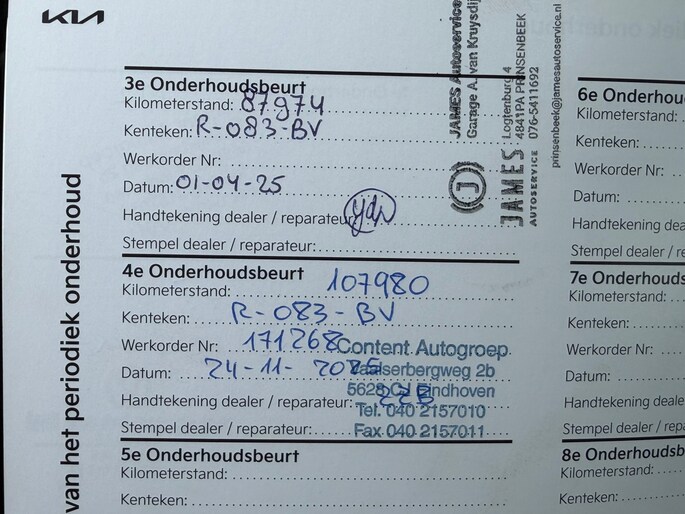 KIA
van het periodiek onderhoud
3e Onderhoudsbeurt
Kilometerstand: 87974
Kenteken: R-083-BV
Werkorder Nr:
Datum: 01-04-25
Handtekening dealer / reparateur:
Stempel dealer / reparateur:
JAMES Autoservice
Garage A. van Kruysdij
JAMES
AUTOSERVICE
Logtenburg 4
4841PA PRINSENBEEK
076-5411692
prinsenbeek@jamesautoservice.nl
4e Onderhoudsbeurt
Kilometerstand: 107980
Kenteken: R-083-BV
Werkorder Nr: 171268
Datum: 24-11-2025
Handtekening dealer / reparateur:
Stempel dealer / reparateur:
Content Autogroep
2b
Eindhoven
Tel. 040 2157010
Fax 040 2157011
5e Onderhoudsbeurt
Kilometerstand:
Kenteken:
6e Onderhou
Kilometerstand:
Kenteken:
Werkorder Nr:
Datum:
Handtekening dea
Stempel dealer / r
7e Onderhouds
Kilometerstand:
Kenteken:
Werkorder Nr:
Datum:
Handtekening deale
Stempel dealer / rep
8e Onderhoudsb
Kilometerstand:
Kenteken: